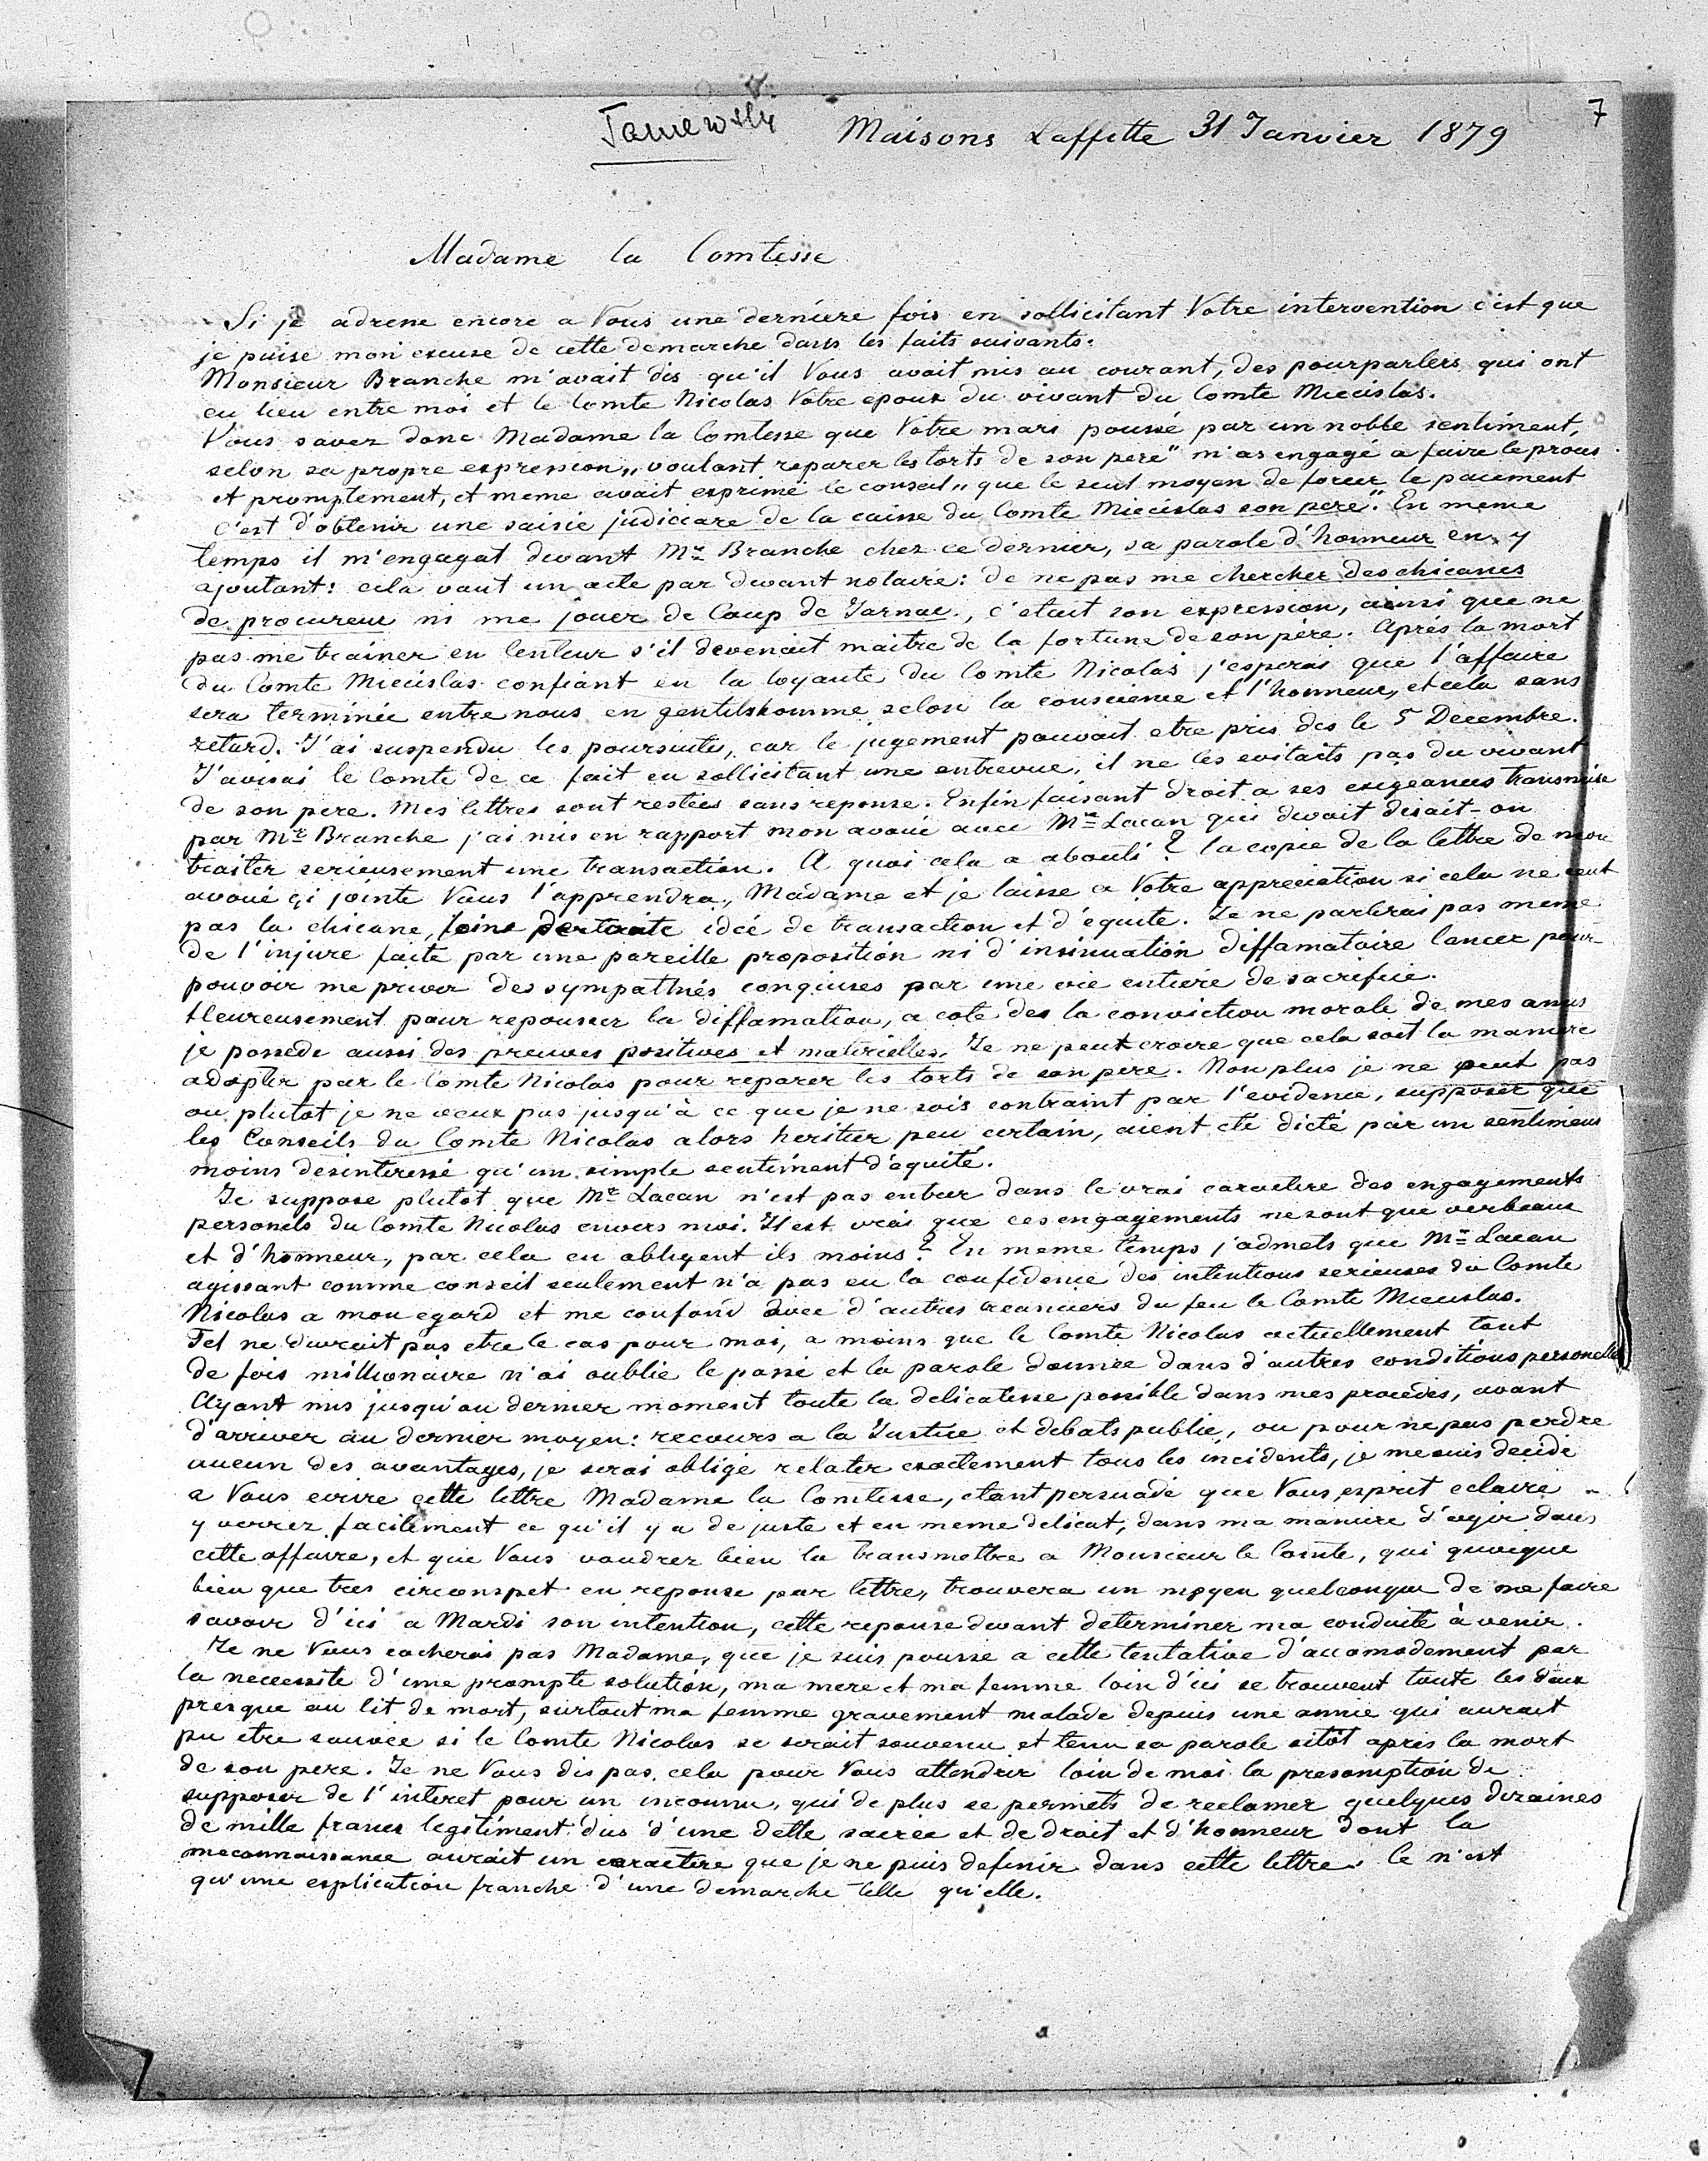 7
Maisons Laffitte 31 Janvier 1879
Madame la Comtesse
Si je adresse encore a Vous une derniére fois en sollicitant Votre intervention c'est que
je puise mon excuse de cette demarche dans les faits suivants.
Monsieur Branche m'avait dis qu'il Vous avait mis au courant, des pourparlers qui ont
eu lieu entre moi et le Comte Nicolas Votre epoux du vivant du Comte Miecislas.
Vous savez donc Madame la Comtesse que Votre mari poussé par un noble sentiment,
selon sa propre expression „voulant reparer les torts de son pere" m'as engagé a faire le proces
et promptement, et meme avait exprimé le conseil „que le seul moyen de forcer le paiement
c'est d'obtenir une saisie judiciare de la caisse du Comte Miecislas son pere". En meme
temps il m'engagat devant Mr Branche chez ce dernier, sa parole d'honneur en y
ajoutant: cela vaut un acte par devant notaire: de ne pas me chercher des chicanes
de procureur ni me jouer de Coup de Jarnac., c'etait son expression, ainsi que ne
pas me trainer en lenteur s'il devenait maitre de la fortune de son père. Aprés la mort
du Comte Miecislas confiant en la loyauté du Comte Nicolas j'esperai que l'affaire
sera terminée entre nous en gentilshomme selon la conscience et l'honneur, et cela sans
retard. J'ai suspendu les poursuites, car le jugement pouvait etre pris des le 5 Decembre.
J'avisai le Comte de ce fait en sollicitant une entrevue, il ne les evitaits pas du vivant
de son pere. Mes lettres sont restées sans reponse. Enfin faisant droit a ses exigeances transmise
par Mr Branche j'ai mis en rapport mon avoué avec Me Lacan qui devait disait-on
traiter serieusement une transaction. A quoi cela a abouti? la copie de la lettre de mon
avoué çi jointe Vous l'apprendra, Madame et je laisse a Votre appreciation si cela ne sent
pas la chicane, loins de toute idée de transaction et d'equité. Je ne parlerai pas meme
de l'injure faite par une pareille proposition ni d'insinuation diffamatoire lancer pour
pouvoir me priver des sympathies conquises par une vie entiére de sacrifice.
Heureusement pour repousser la diffamation, a coté des la conviction morale de mes amis
je possede aussi des preuves positives et materielles. Je ne peut croire que cela soit la maniere
adopter par le Comte Nicolas pour reparer les torts de son pere. Non plus je ne peut pas
ou plutot je ne veux pas jusqu'à ce que je ne sois contraint par l'evidence, supposer que
les Conseils du Comte Nicolas alors heritier peu certain, aient eté dicté par un sentiment
moins desinteressé qu'un simple sentiment d'equité.
Je suppose plutot que Me Lacan n'est pas entrer dans le vrai caractere des engagements
personels du Comte Nicolas envers moi. Il est vrai que ces engagements ne sont que verbeaux
et d'honneur, par cela en obligent ils moins? En meme temps j'admets que Me Lacan
agissant comme conseil seulement n'a pas eu la confidence des intentions serieuses du Comte
Nicolas a mon egard et me confond avec d'autres creanciers du feu le Comte Miecislas.
Tel ne devrait pas etre le cas pour moi, a moins que le Comte Nicolas actuellement tant
de fois millionaire n'ai oublie le passé et la parole donnée dans d'autres conditions personelles
Ayant mis jusqu'au dernier moment toute la delicatesse possible dans mes procedes, avant
d'arriver au dernier moyen: recours a la Justice et debats public, ou pour ne pas perdre
aucun des avantages, je serai obligé relater exactement tous les incidents, je me suis decidé
a Vous ecrire cette lettre Madame la Comtesse, etant persuadé que Vous, esprit eclairé
y verrez facilement ce qu'il y a de juste et en meme delicat, dans ma maniere d'agir dans
cette affaire, et que Vous voudrez bien la transmettre a Monsieur le Comte, qui quoique
bien que tres circonspet en reponse par lettre, trouvera un moyen quelconque de me faire
savoir d'ici a Mardi son intention, cette reponse devant determiner ma conduite à venir.
Je ne Vous cacherai pas Madame, que je suis poussé a cette tentative d'accomodement par
la necessité d'une prompte solution, ma mere et ma femme loin d'ici se trouvent toute les deux
presque au lit de mort, surtout ma femme gravement malade depuis une année qui aurait
pu etre sauvée si le Comte Nicolas se serait souvenu et tenu sa parole sitôt apres la mort
de son pere. Je ne Vous dis pas cela pour Vous attendrir loin de moi la presomption de
supposer de l'interet pour un inconnu, qui de plus se permets de reclamer quelques dizaines
de mille francs legitiment dus d'une dette sacrée et de droit et d'honneur dont la
meconnaissance aurait un caractere que je ne puis definir dans cette lettre. Ce n'est
qu'une explication franche d'une demarche telle qu'elle.